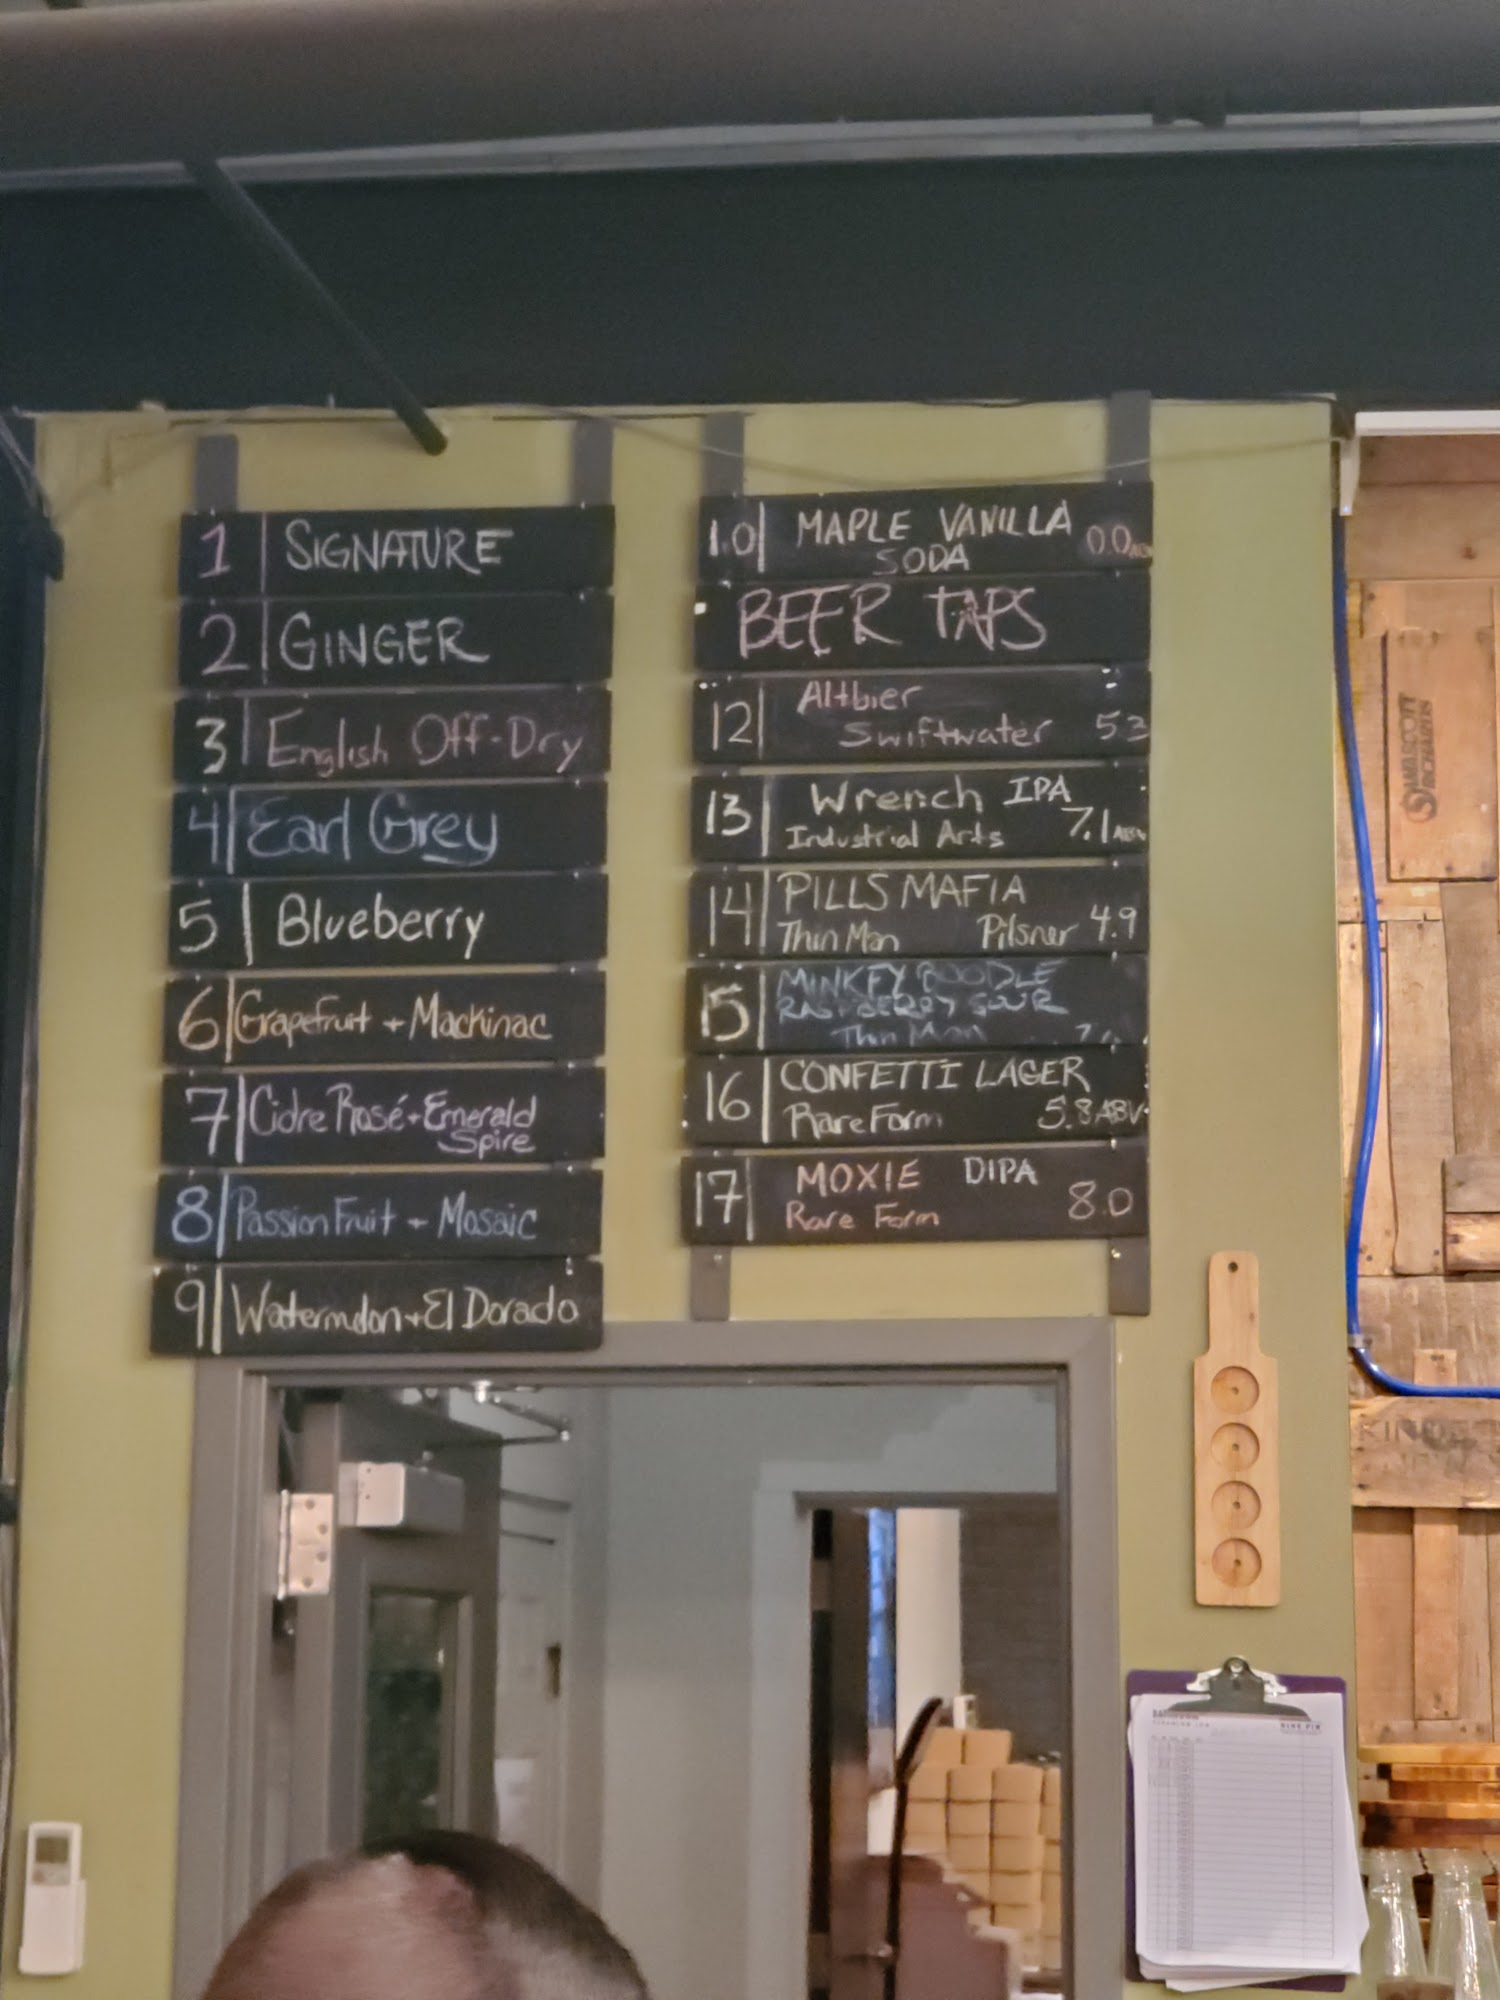 1 SIGNATURE
2 GINGER
3 English Off-Dry
4 Earl Grey
5 Blueberry
6 Grapefruit + Mackinac
7 Cidre Rosé + Emerald
Spire
8 Passion Fruit + Mosaic
9 Watermelon + El Dorado
10 MAPLE VANILLA
SODA 0.0 ABV
BEER TAPS
12 Altbier
Swiftwater 5.3
13 Wrench IPA
Industrial Arts 7.1 ABV
14 PILLS MAFIA
Thin Man Pilsner 4.9
15 MINKEY BOODLE
RASPBERRY SOUR
Thin Man
16 CONFETTI LAGER
Rare Form 5.8 ABV
17 MOXIE DIPA
Rare Form 8.0
NINE PIN